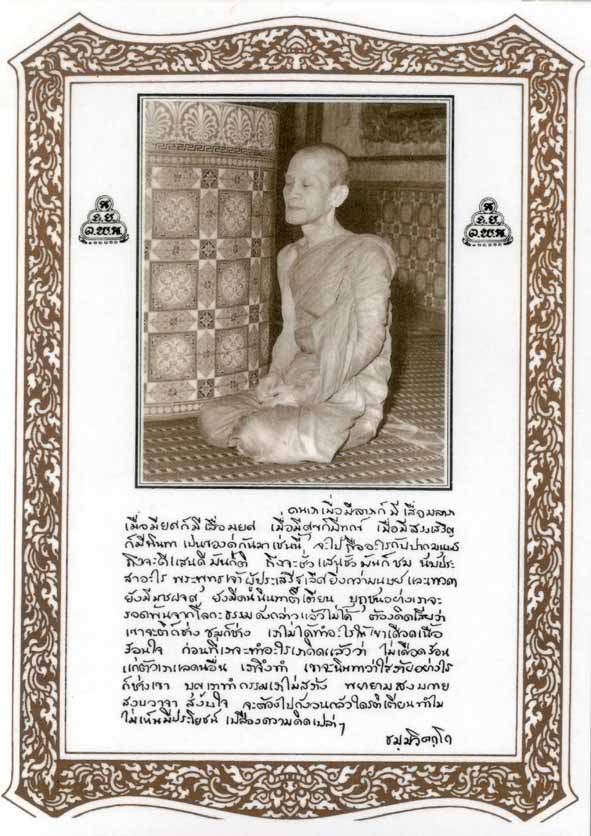 ห
ร.ย.
ล.พ.ท.
ห
ร.ย.
ล.พ.ท.
คนเราเมื่อมีลาภก็มีเสื่อมลาภ
เมื่อมียศก็มีเสื่อมยศ เมื่อมีสุขก็มีทุกข์ เมื่อมีสรรเสริญ
ก็มีนินทา เป็นของคู่กันมาเช่นนี้ จะไปถืออะไรกับปากมนุษย์
ถึงจะดีแสนดีมันก็ติ ถึงจะชั่วแสนชั่วมันก็ชม นับประ
สาอะไร พระพุทธเจ้าผู้ประเสริฐเลิศยิ่งกว่ามนุษย์และเทวดา
ยังมีมารผจญ ยังมีคนนินทาติเตียน ปุถุชนอย่างเราจะ
รอดพ้นจากโลกะธรรมดังกล่าวแล้วไม่ได้ ต้องคิดเสียว่า
เขาจะติก็ช่าง ชมก็ช่าง เราไม่ได้ทำอะไรให้เขาเดือดเนื้อ
ร้อนใจ ก่อนที่เราจะทำอะไรเราคิดแล้วว่า ไม่เดือดร้อน
แก่ตัวเราและคนอื่น เราจึงทำ เขาจะนินทาว่าใส่ร้ายอย่างไร
ก็ช่างเขา บุญเราทำกรรมเราไม่สร้าง พยายามสงบกาย
สงบวาจา สงบใจ จะต้องไปกังวลกลัวใครติเตียนทำไม
ไม่เห็นมีประโยชน์ เปลืองความคิดเปล่าๆ